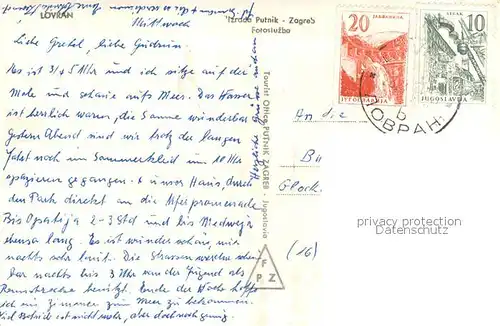 LOVRAN
Mittwoch
Liebe Gretel, liebe Gudrun.
Es ist 3/4 5 Uhr und ich sitze auf der
Mole und schaue aufs Meer. Das Wasser
ist herrlich warm, die Sonne wunderbar
Gestern Abend sind wir trotz der langen
Fahrt noch im Sommerkleid um 10 Uhr
spazieren gegangen. unser Haus, durch
den Park direkt an die Uferpromenade
Bis Opatija 2-3 Std und bis Medweja
ebenso lang. Es ist wunderschön, nur
nachts sehr laut. Die Strassen werden
bar nachts bis 3 Uhr von der Jugend als
Rennstrecke benützt. Ende der Woche hoffe
ich ein Zimmer zum Meer zu bekommen.
Viel Betrieb ist nicht mehr, aber doch noch genug.
Herzliche Grüsse
Izrada Putnik - Zagreb
Fotoslužba
Tourist Office PUTNIK ZAGREB - Jugoslavia
F
P Z
20
JABLANICA
JUGOSLAVIJA
10
JUGOSLAVIJA
ЛОВРАН
b
An die
Glock
(16)
privacy protection
Datenschutz